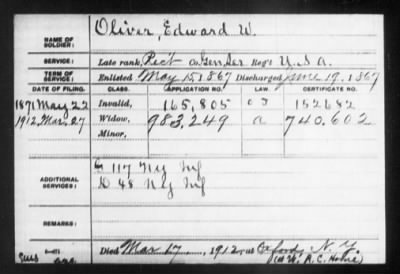 NAME OF SOLDIER: Oliver, Edward W.
SERVICE: Late rank, Rec't Co. Gen. Ser. Reg't U.S.A.
TERM OF SERVICE: Enlisted May 15, 1867 Discharged June 19, 1867
DATE OF FILING. CLASS. APPLICATION NO. LAW. CERTIFICATE NO.
1871 May 22 Invalid, 165,805 152682
1912 Mar. 27 Widow, 983,249 a 740,602
Minor,
ADDITIONAL SERVICES: G 117 N.Y. Inf
D 48 N.Y. Inf
REMARKS:
Died Mar 17, 1912, at Oxford, N.Y.
(W.R.C. Home)